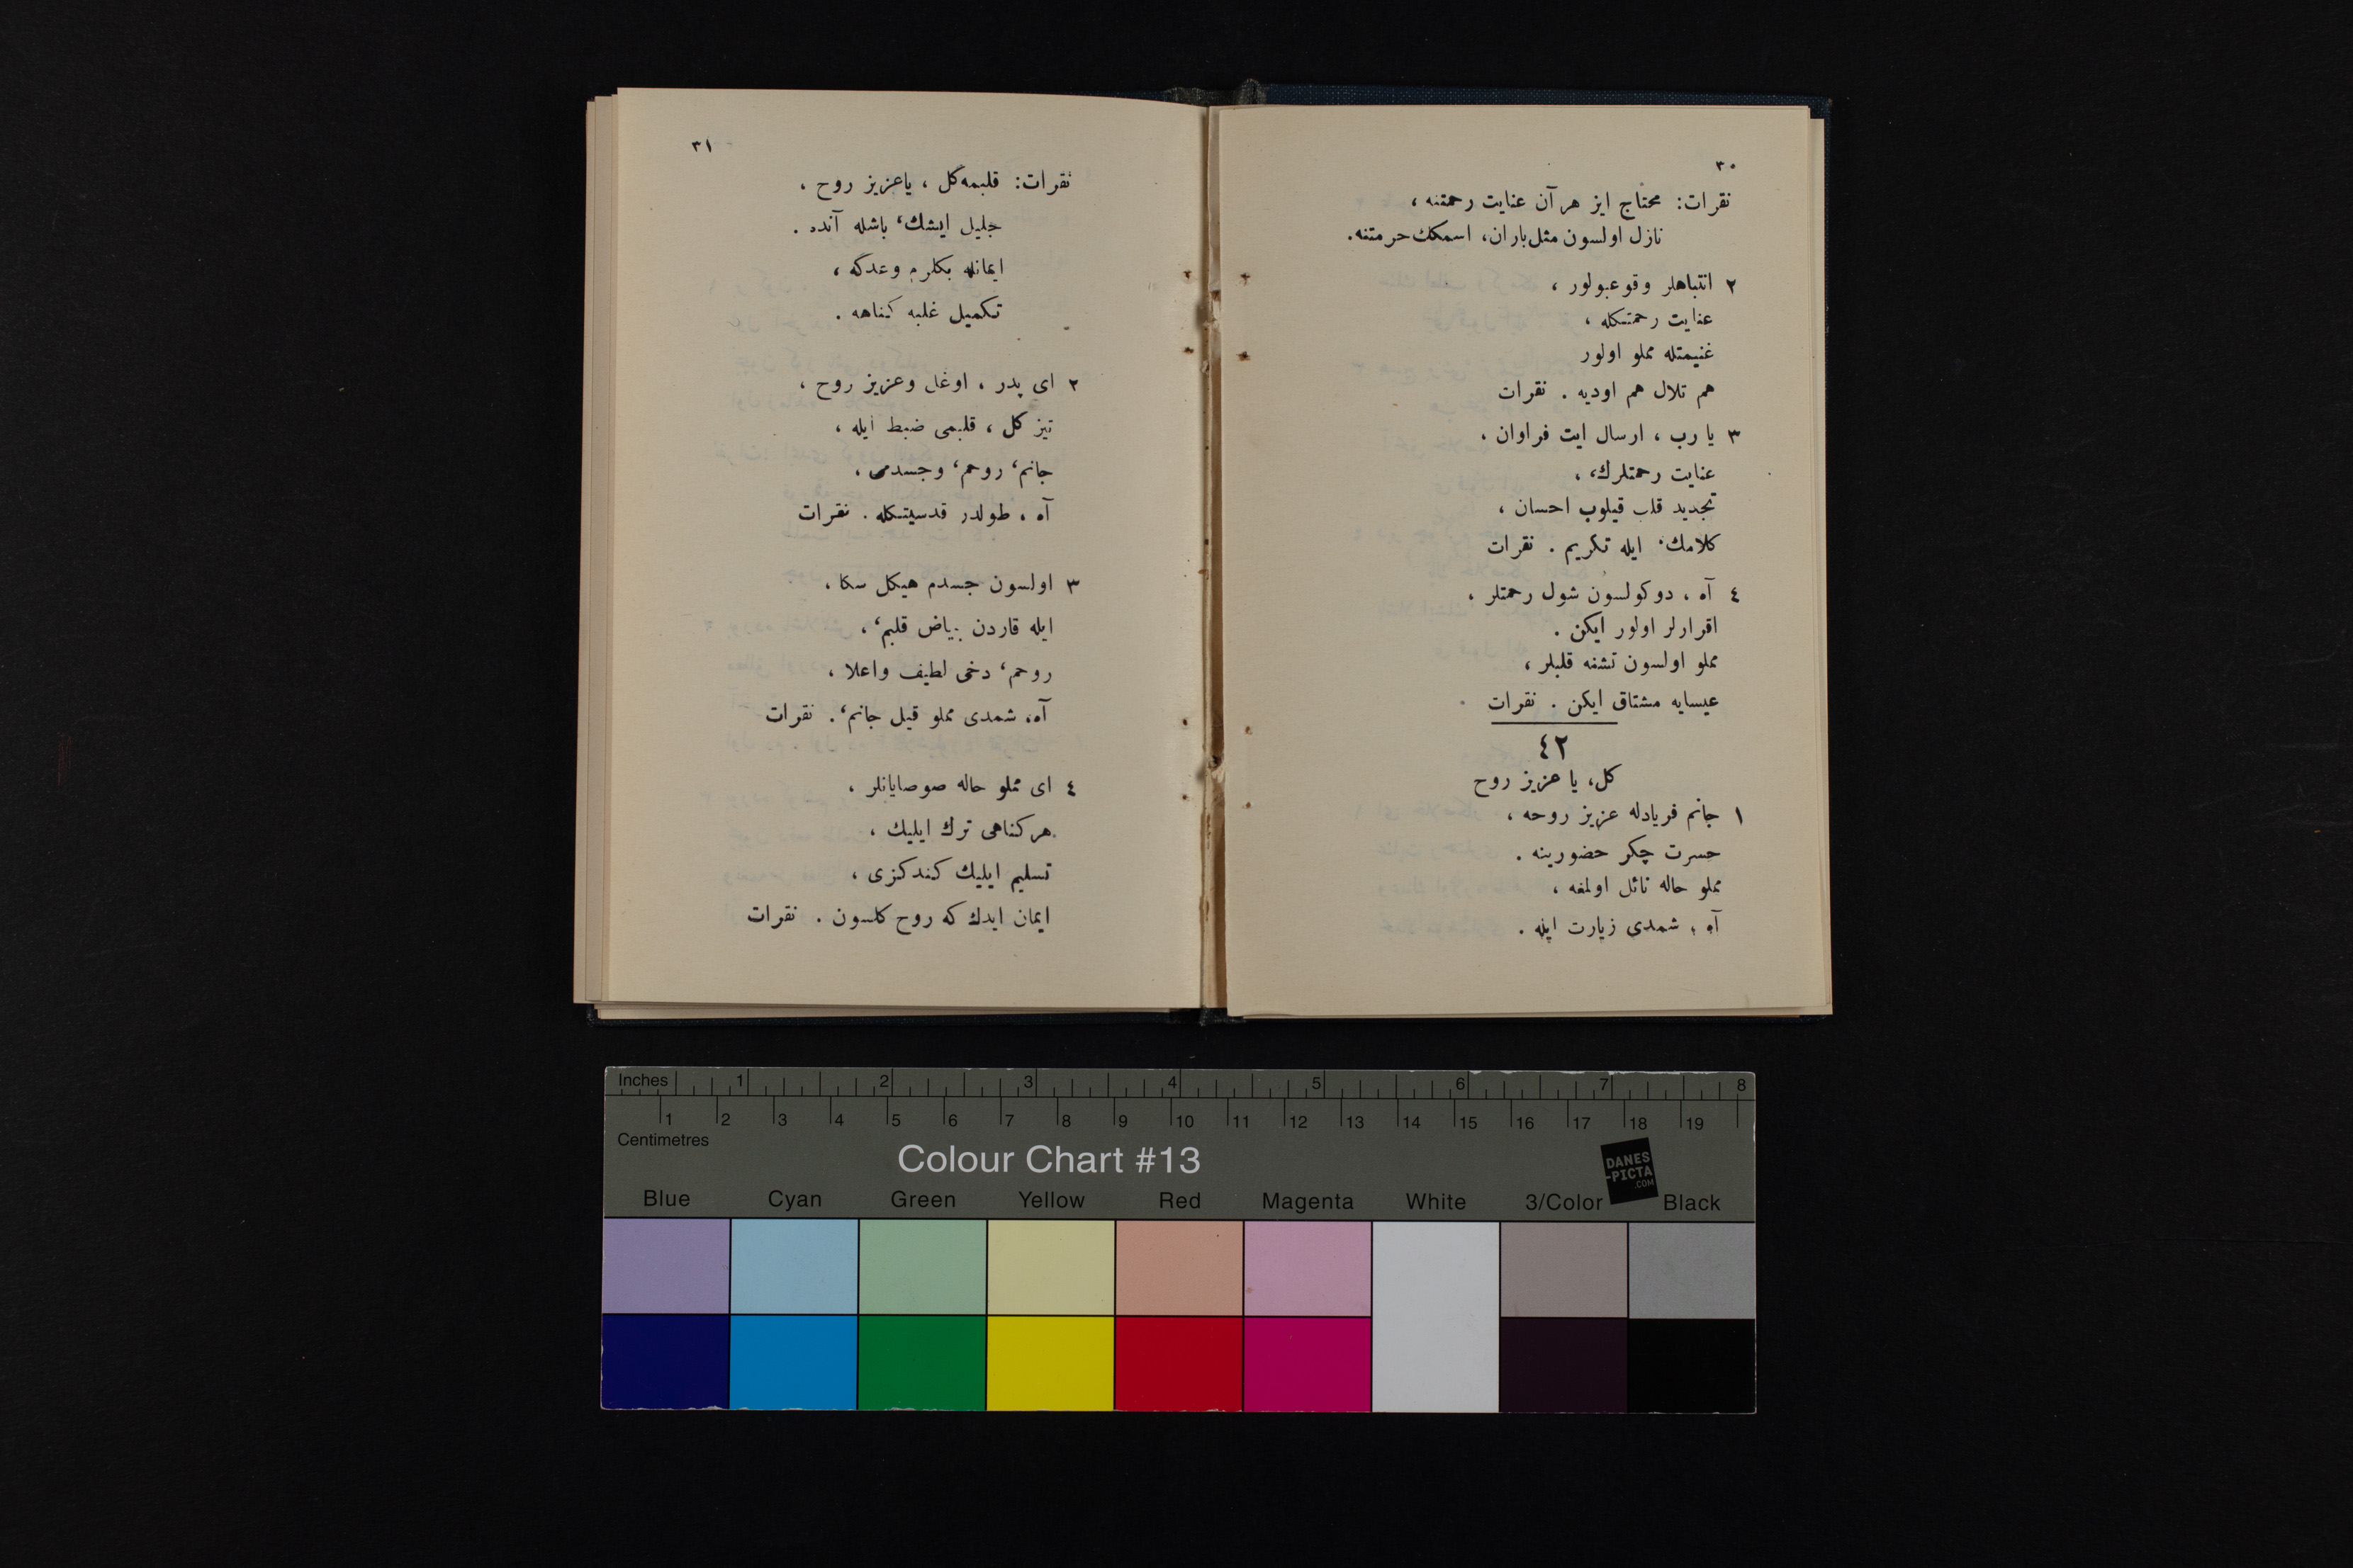 ٣٠
نقرات: محتاج ایز هر آن عنایت رحمتنه ،
نازل اولسون مثل باران، اسمكك حرمتنه.
٢ انتباهلر وقوعبولور ،
عنایت رحمتكله ،
غنیمتله مملو اولور
هم تلال هم اودیه . نقرات
٣ یا رب ، ارسال ایت فراوان ،
عنایت رحمتلرك، ،
تجدید قلب قیلوب احسان ،
كلامك، ایله تكریم . نقرات
٤ آه ، دوكولسون شول رحمتلر ،
اقرارلر اولور ایكن .
مملو اولسون تشنه قلبلر ،
عیسایه مشتاق ایكن . نقرات
٤٢
كل، یا عزیز روح
١ جانم فریادله عزیز روحه ،
حسرت چكر حضورینه .
مملو حاله نائل اولمغه ،
آه ، شمدی زیارت ایله .
٣١
نقرات: قلبمه كل ، یاعزیز روح ،
جلیل ایشك، باشله آنده .
ایمانله بكلرم وعدكه ،
تكمیل غلبه كناهه .
٢ ای پدر ، اوغل وعزیز روح ،
تیز كل ، قلبمی ضبط ایله ،
جانم، روحم، وجسدمی ،
آه ، طولدر قدسیتكله . نقرات
٣ اولسون جسدم هیكل سكا ،
ایله قاردن بیاض قلبم، ،
روحم، دخی لطیف واعلا ،
آه، شمدی مملو قیل جانم، . نقرات
٤ ای مملو حاله صوصایانلر ،
هر كناهی ترك ایلیك ،
تسلیم ایلیك كندكزی ،
ایمان ایدك كه روح كلسون . نقرات
Inches 1 2 3 4 5 6 7 8
1 2 3 4 5 6 7 8 9 10 11 12 13 14 15 16 17 18 19
Centimetres
Colour Chart #13
DANES
-PICTA
.COM
Blue Cyan Green Yellow Red Magenta White 3/Color Black